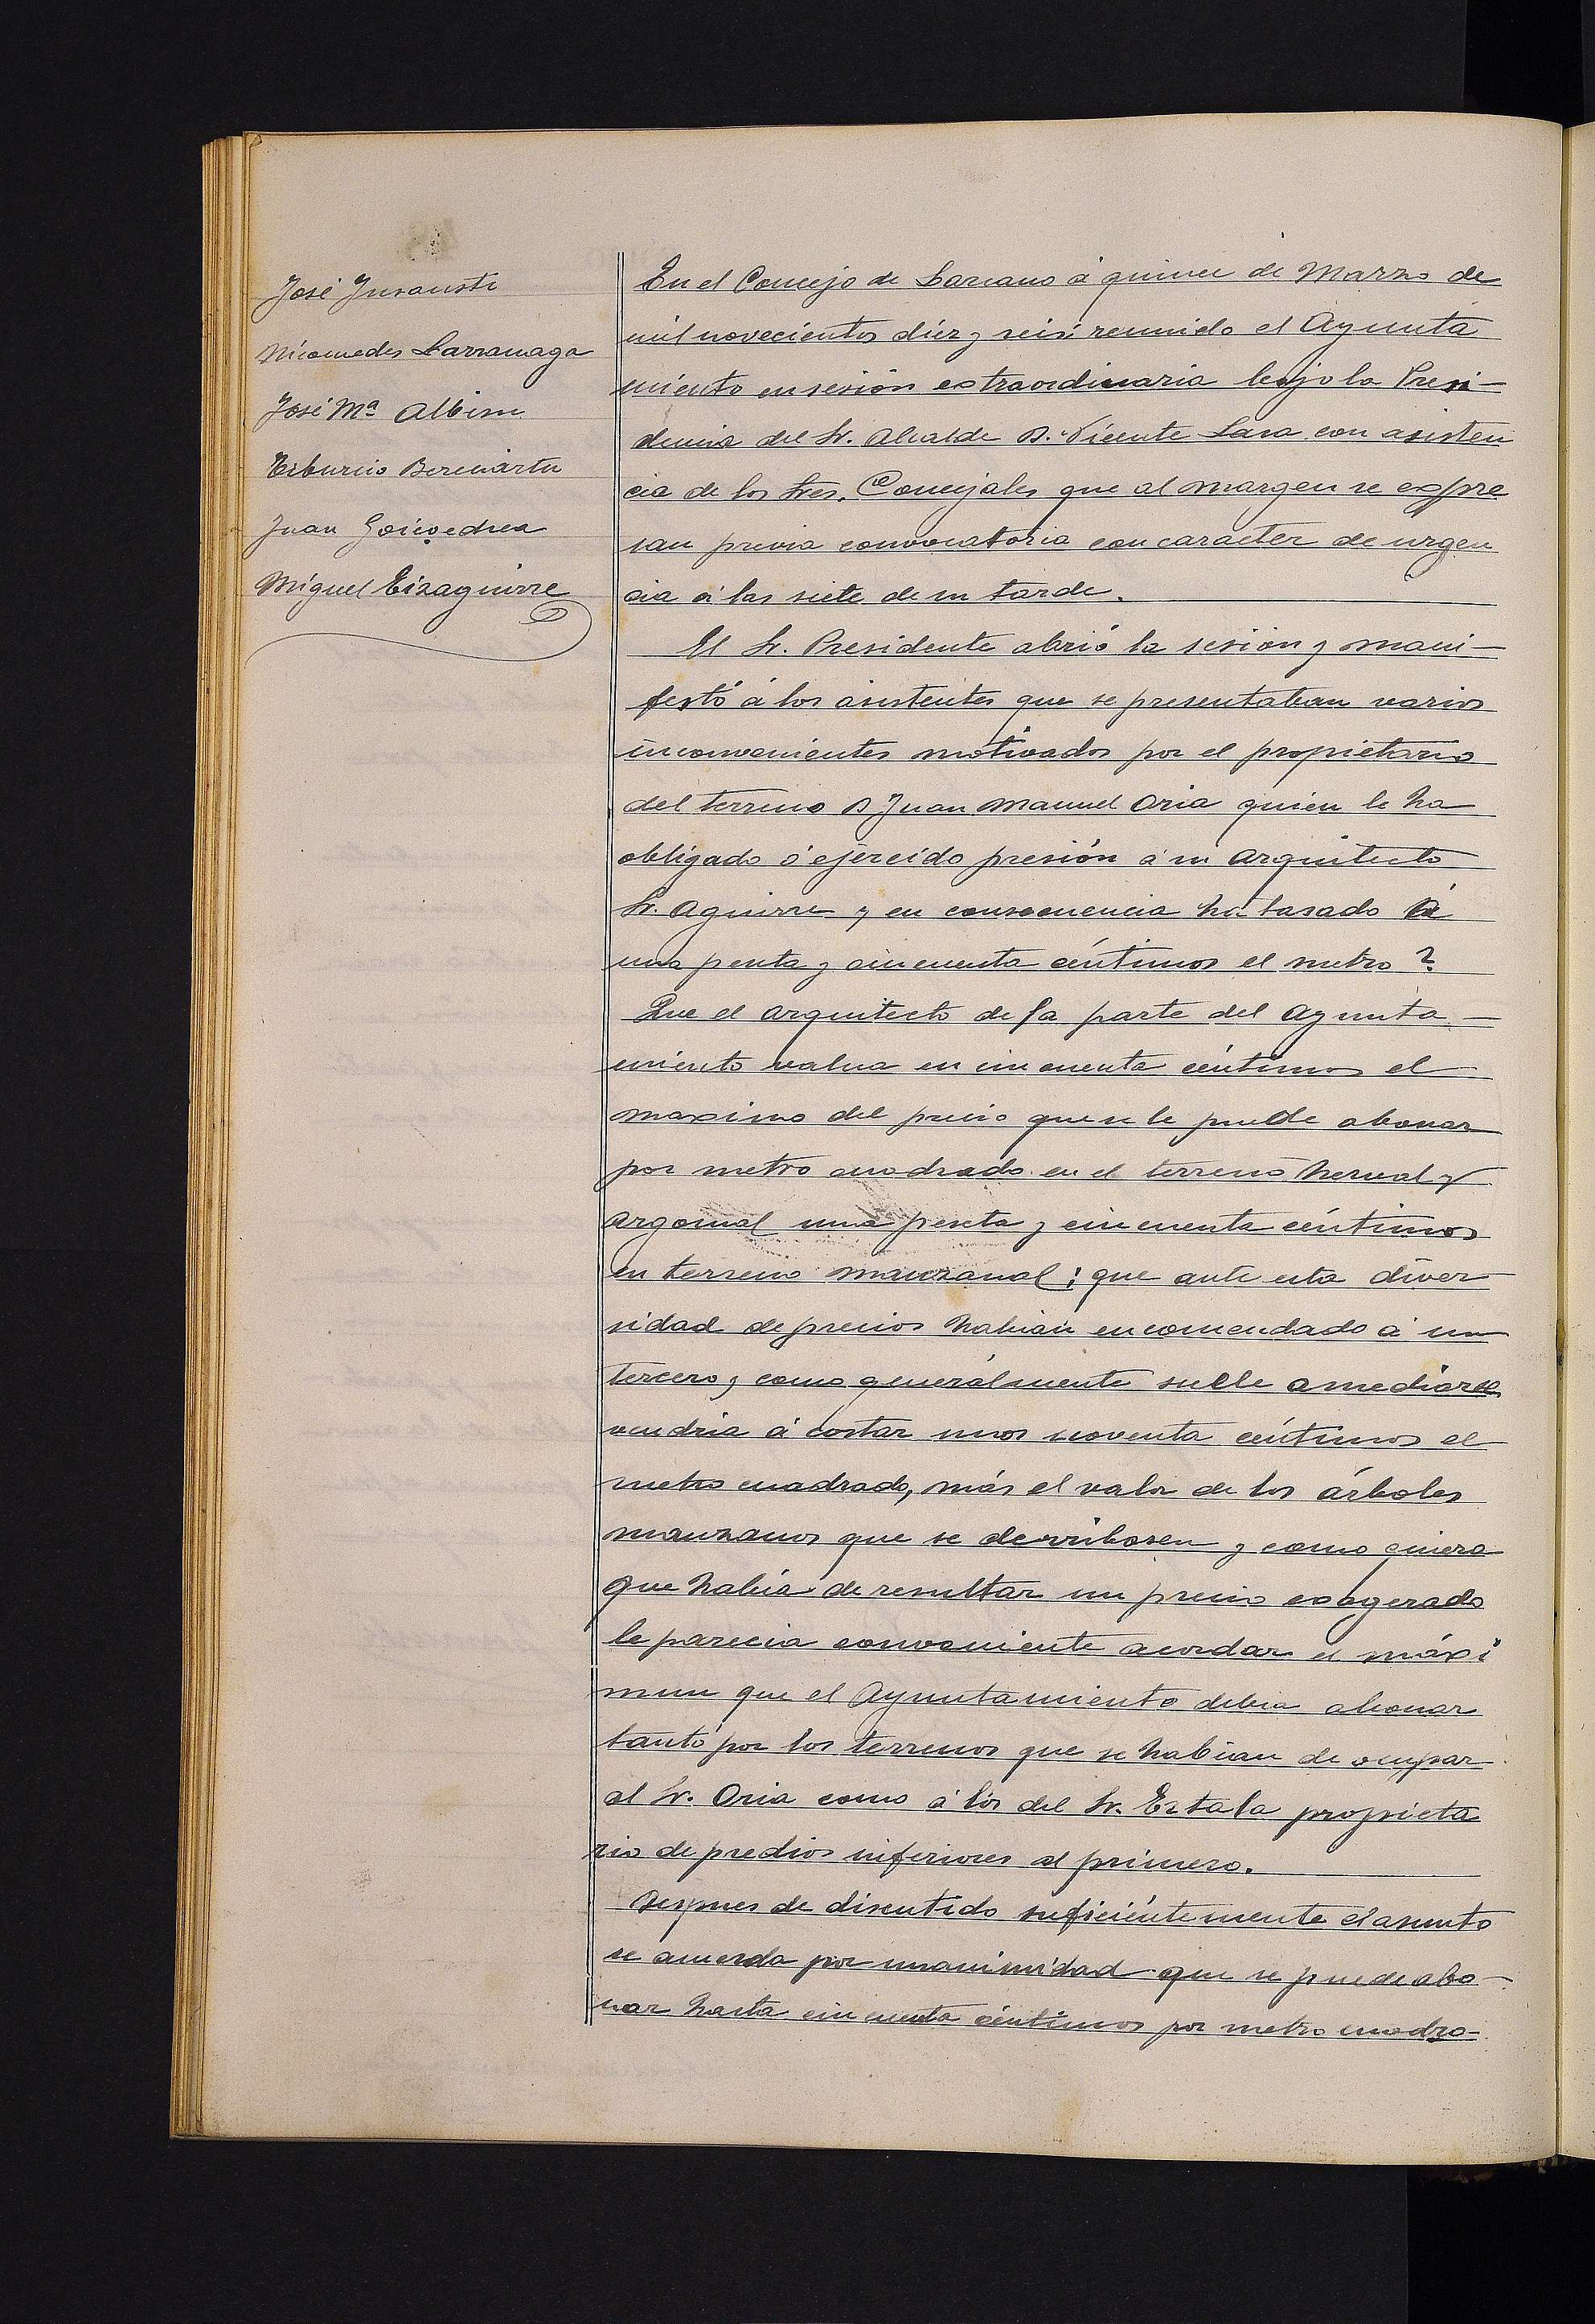 José Insausti
Nicomedes Larranaga
José Mª Albisu
Tiburcio Bereciartu
Juan Goicoechea
Miguel Eizaguirre
En el Concejo de Lazcano á quince de Marzo de
mil novecientos diez y seis reunido el Ayunta
miento en sesión extraordinaria bajo la Presi-
dencia del Sr. Alcalde D. Vicente Lasa con asisten
cia de los Sres. Concejales que al margen se expre
san previa convocatoria con carácter de urgen
cia á las siete de su tarde.
El Sr. Presidente abrió la sesión y mani-
festó á los asistentes que se presentaban varios
inconvenientes motivados por el propietario
del terreno D Juan Manuel Oria quien le ha
obligado ó ejercido presión á su Arquitecto
Sr. Aguirre y en consecuencia ha tasado á
una peseta y cincuenta céntimos el metro 2.
Que el arquitecto de la parte del Ayunta-
miento valua en cincuenta céntimos el
maximo del precio que se le puede abonar
por metro cuadrado en el terreno herval y
argomal una peseta y cincuenta céntimos
en terreno manzanal; que ante esta diver
sidad de precios habian encomendado á un
tercero y como generálmente suele amediarse
vendria á costar unos noventa céntimos el
metro cuadrado, más el valor de los árboles
manzanos que se derribasen y como quiera
que habia de resultar un precio exagerado
le parecia conveniente acordar el máxi
mun que el Ayuntamiento debia abonar
tanto por los terrenos que se habian de ocupar
al Sr. Oria como á los del Sr. Eztala propieta
rio de predios inferiores al primero.
Despues de discutido suficiéntemente el asunto
se acuerda por unanimidad que se puede abo-
nar hasta cincuenta céntimos por metro cuadra-